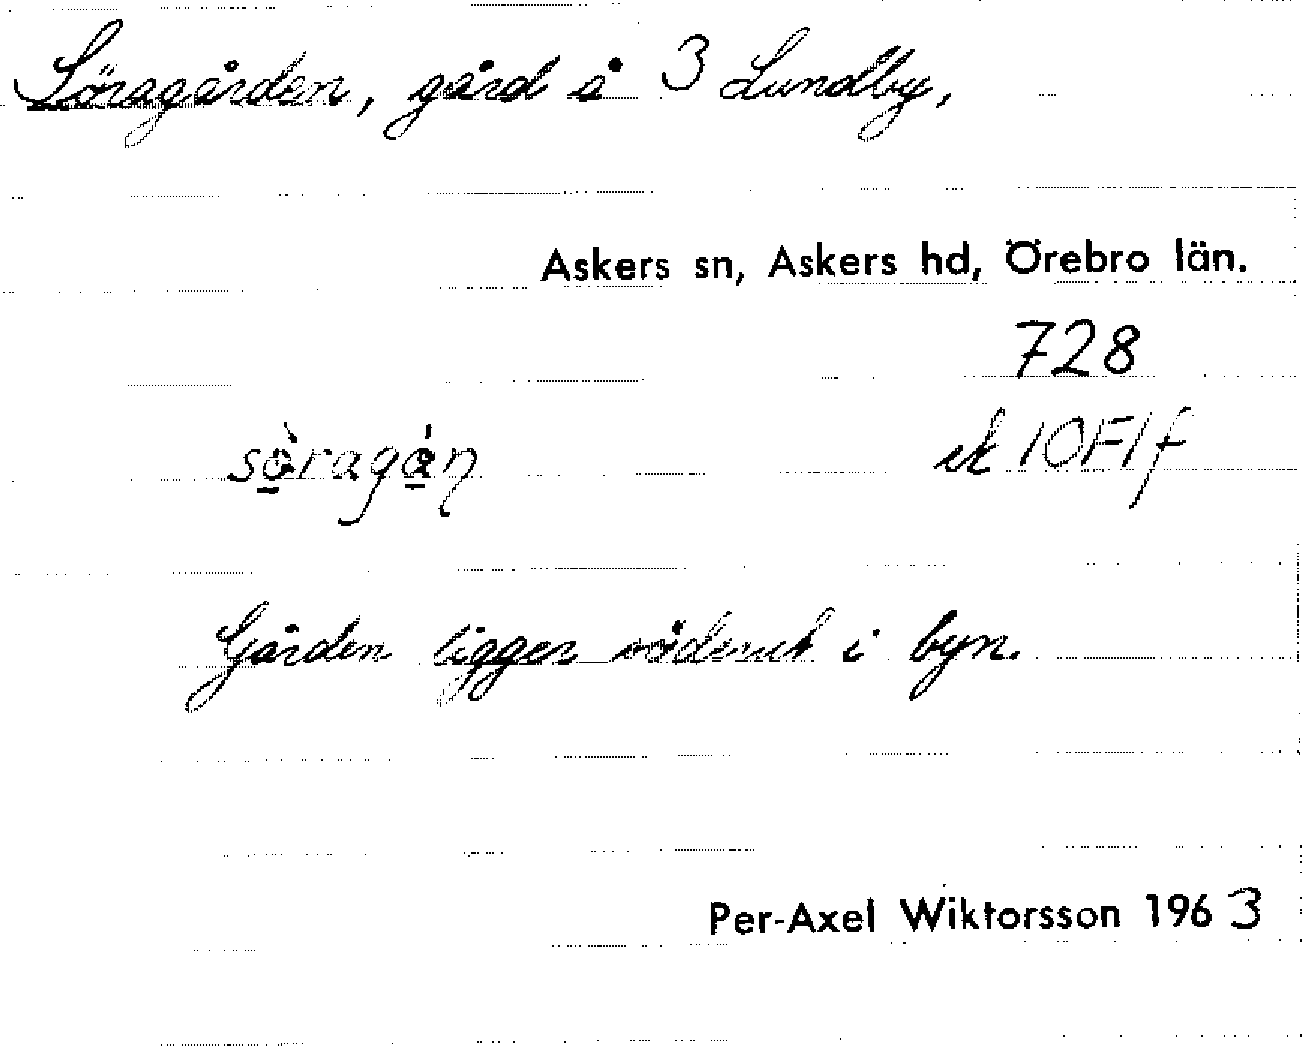 Söragården, gård å 3 Lundby,
Askers sn, Askers hd, Örebro län.
728
sö̀ragǻn ek 10F1f
Gården ligger söderut i byn.
Per-Axel Wiktorsson 1963